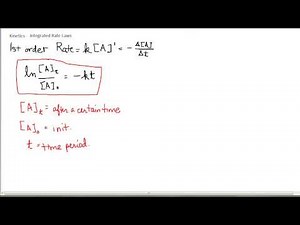 Kinetics - Integrated Rate Laws
1st order Rate = k[A]¹ = - Δ[A]/Δt
ln [A]t/[A]₀ = -kt
[A]t = after a certain time
[A]₀ = init.
t = time period.